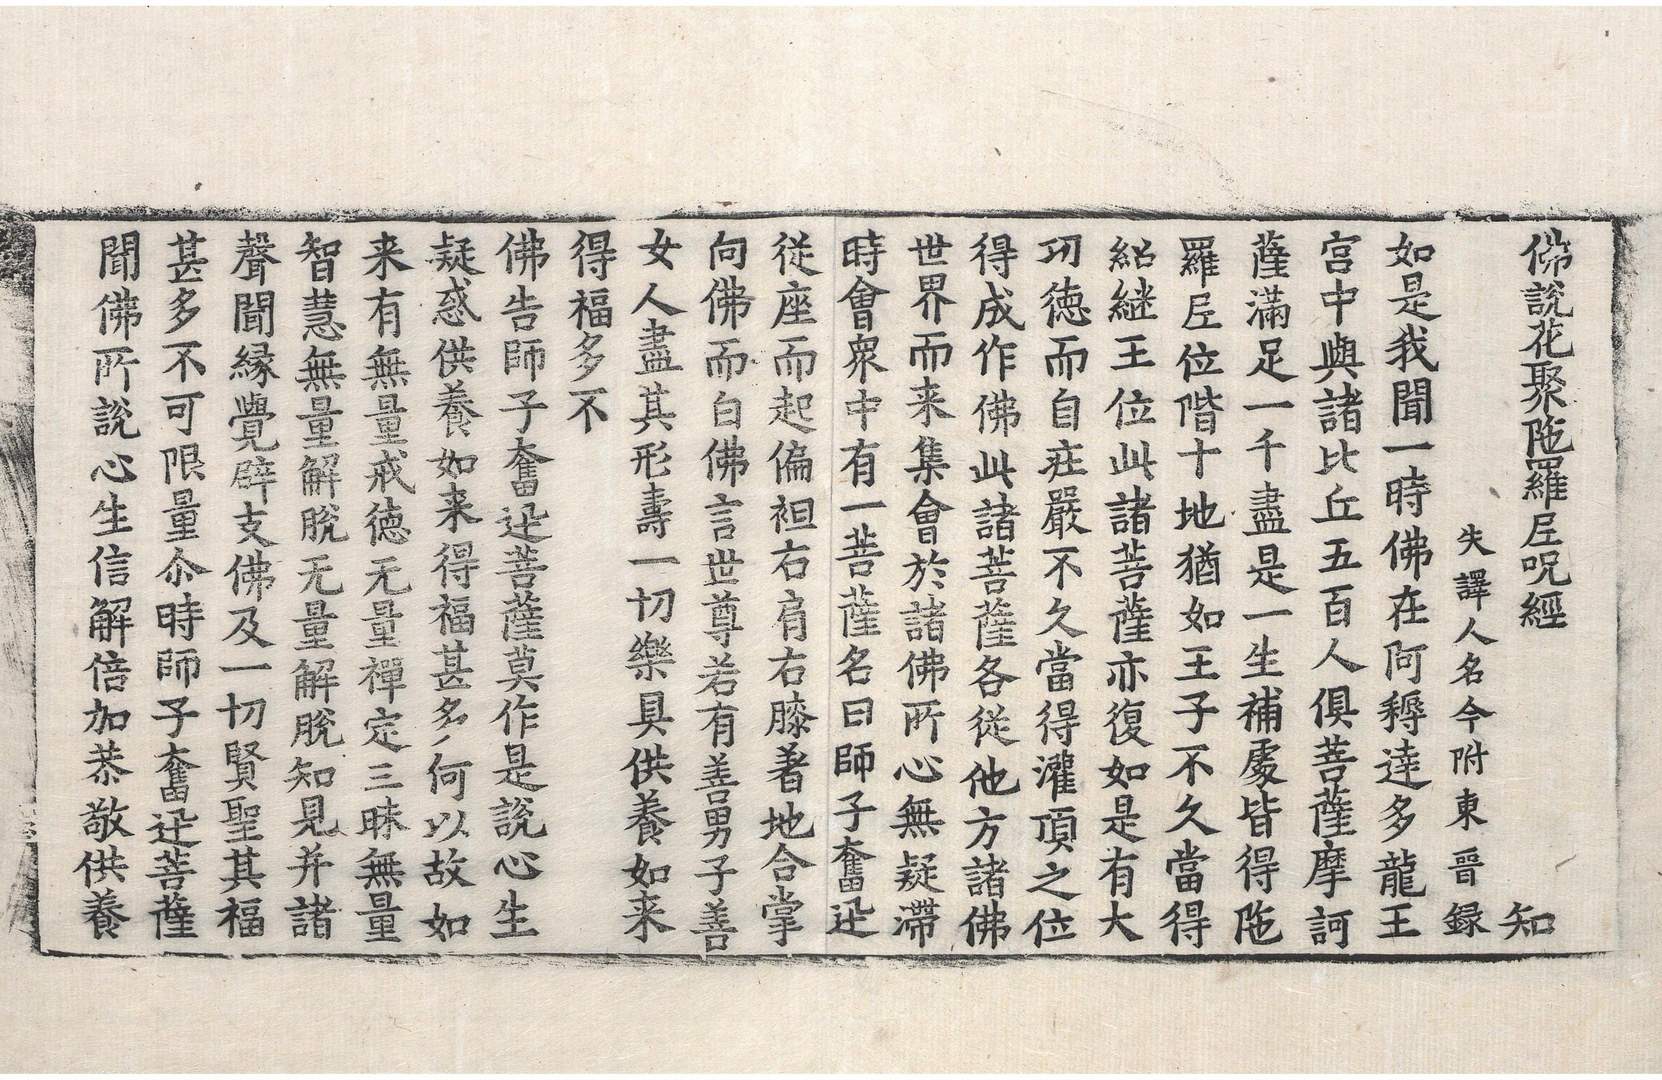 佛說花聚陁羅尼呪經　知
失譯人名今附東晉録
如是我聞一時佛在阿耨達多龍王
宮中與諸比丘五百人俱菩薩摩訶
薩滿足一千盡是一生補處皆得陁
羅尼位階十地猶如王子不久當得
紹継王位此諸菩薩亦復如是有大
功德而自莊嚴不久當得灌頂之位
得成作佛此諸菩薩各従他方諸佛
世界而来集會於諸佛所心無疑滯
時會衆中有一菩薩名曰師子奮迅
従座而起偏袒右肩右膝著地合掌
向佛而白佛言世尊若有善男子善
女人盡其形壽一切樂具供養如来
得福多不
佛告師子奮迅菩薩莫作是說心生
疑惑供養如来得福甚多何以故如
来有無量戒德无量禪定三昧無量
智慧無量解脫无量解脫知見并諸
聲聞縁覺辟支佛及一切賢聖其福
甚多不可限量尒時師子奮迅菩薩
聞佛所說心生信解倍加恭敬供養